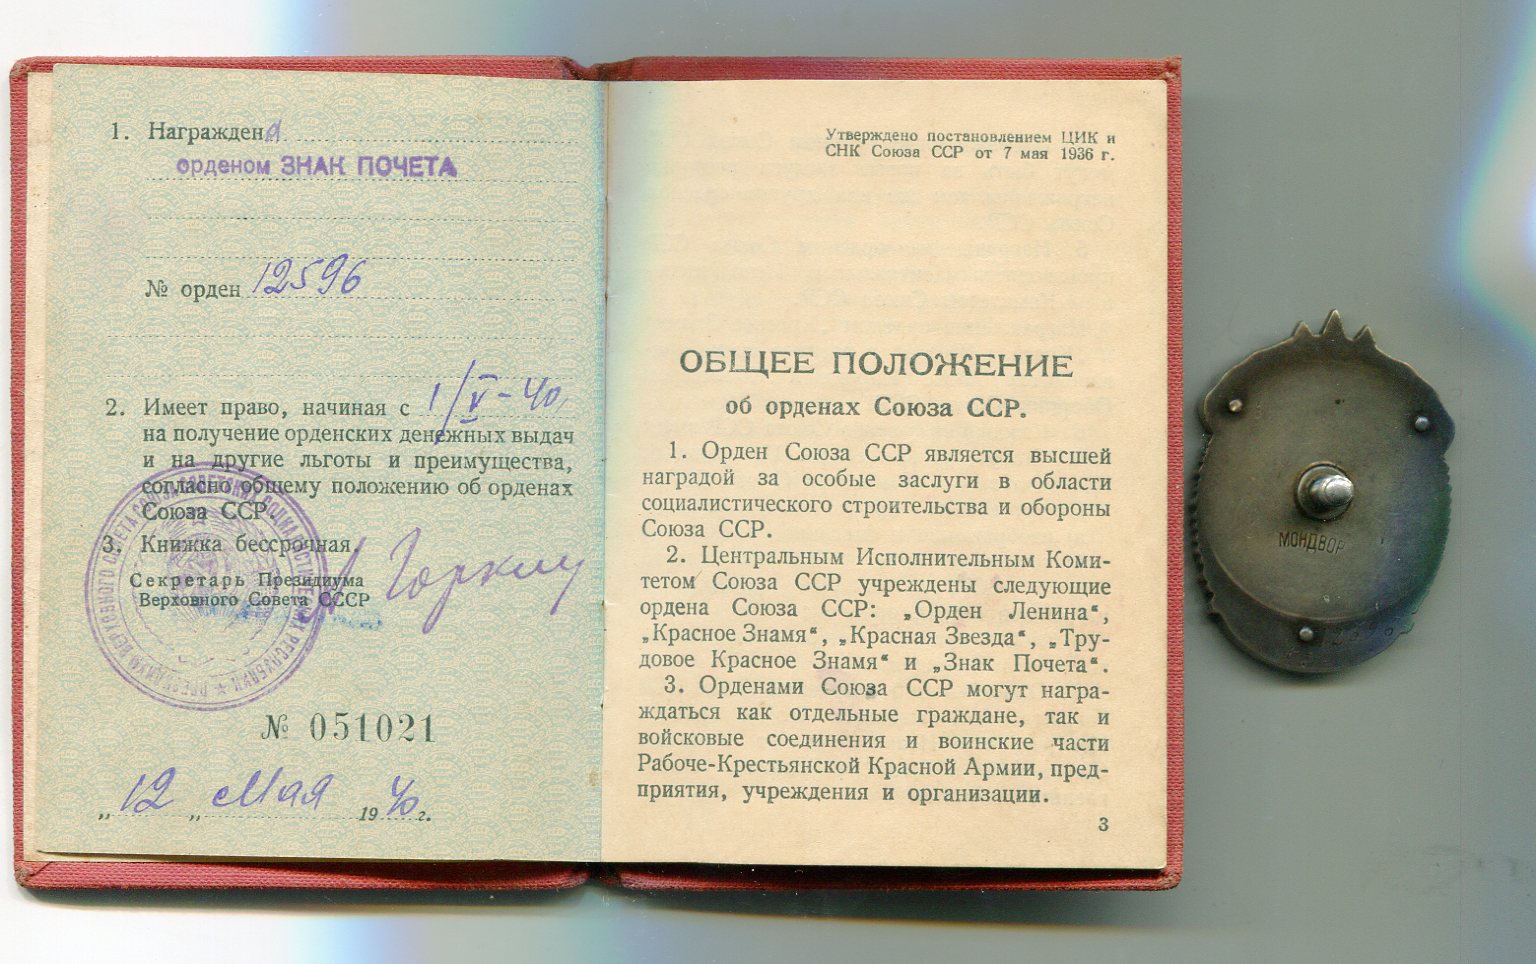 1. Награждена
орденом ЗНАК ПОЧЕТА
№ орден 12596
2. Имеет право, начиная с 1/V-40
на получение орденских денежных выдач
и на другие льготы и преимущества,
согласно общему положению об орденах
Союза ССР.
3. Книжка бессрочная.
Секретарь Президиума
Верховного Совета СССР
Горкин
№ 051021
„ 12 „ Мая 1940 г.
Утверждено постановлением ЦИК и
СНК Союза ССР от 7 мая 1936 г.
ОБЩЕЕ ПОЛОЖЕНИЕ
об орденах Союза ССР.
1. Орден Союза ССР является высшей
наградой за особые заслуги в области
социалистического строительства и обороны
Союза ССР.
2. Центральным Исполнительным Коми-
тетом Союза ССР учреждены следующие
ордена Союза ССР: „Орден Ленина“,
„Красное Знамя“, „Красная Звезда“, „Тру-
довое Красное Знамя“ и „Знак Почета“.
3. Орденами Союза ССР могут награ-
ждаться как отдельные граждане, так и
войсковые соединения и воинские части
Рабоче-Крестьянской Красной Армии, пред-
приятия, учреждения и организации.
3
МОНДВОР